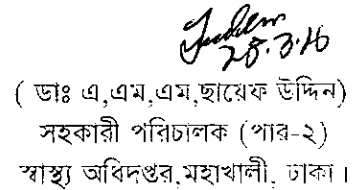 28.3.16
( ডাঃ এ,এম,এম,ছায়েফ উদ্দিন)
সহকারী পরিচালক (পার-২)
স্বাস্থ্য অধিদপ্তর,মহাখালী, ঢাকা।